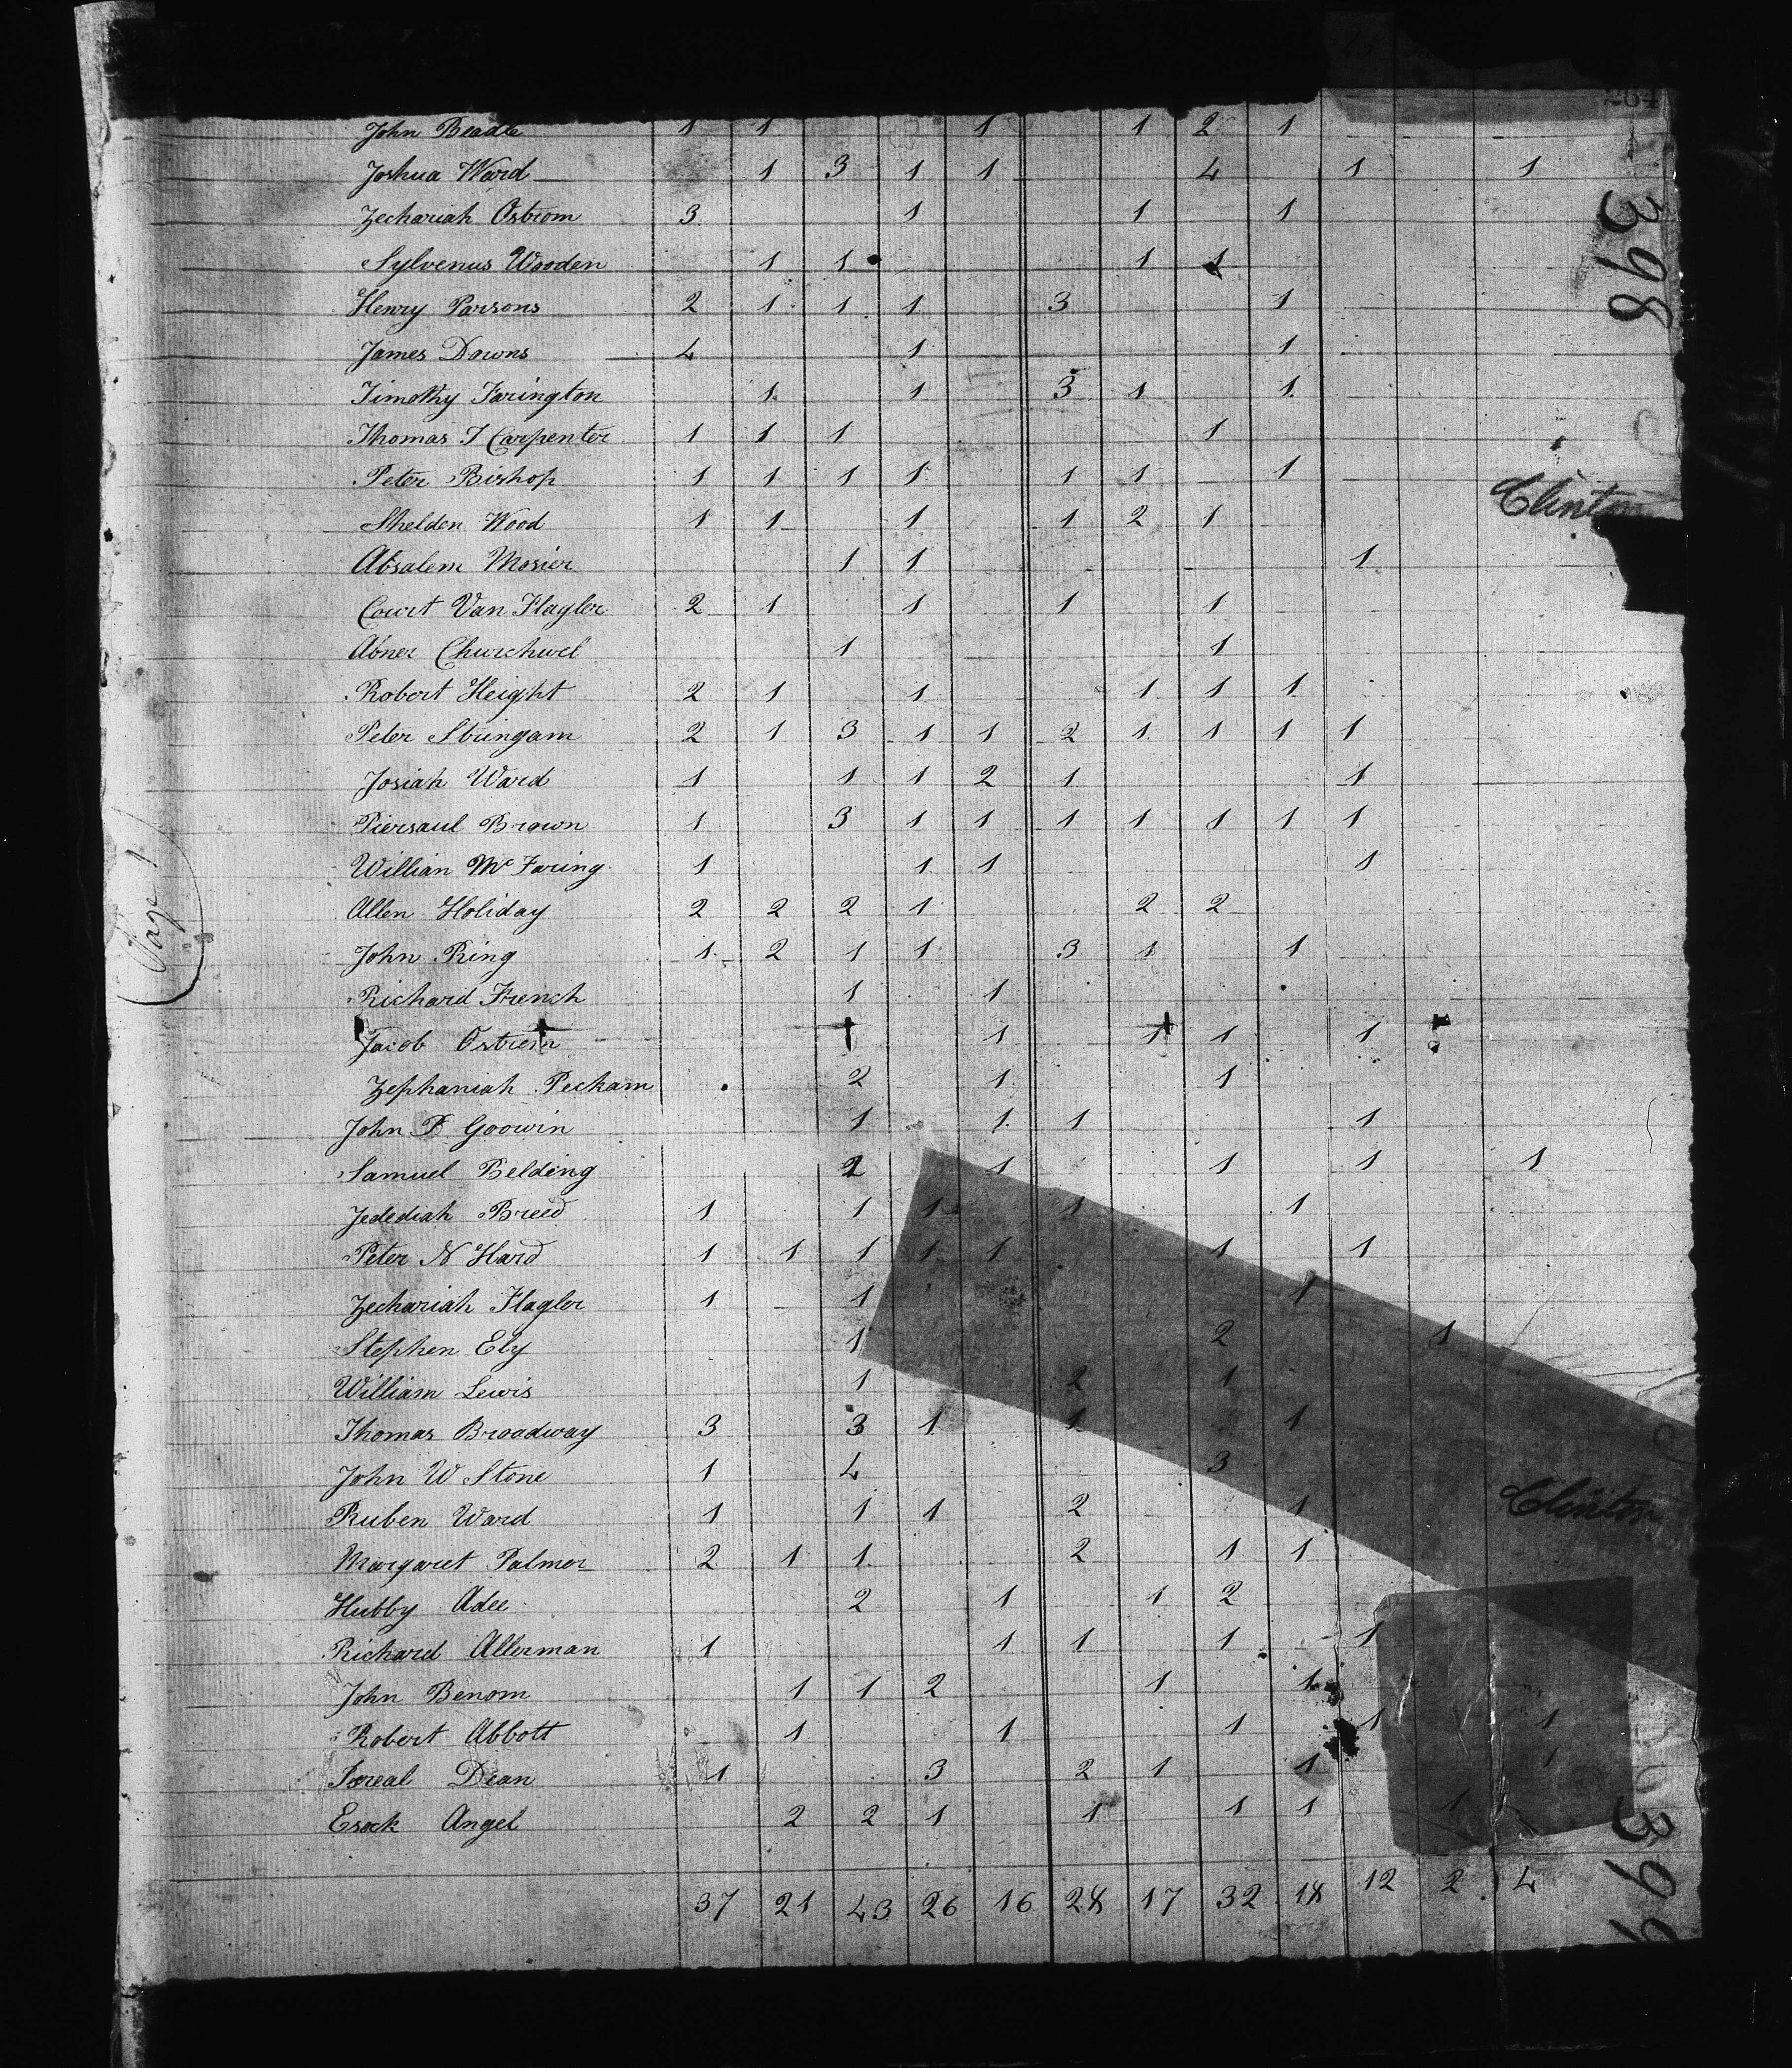 264
John Beadle 1 1 1 1 2 1
Joshua Ward 1 3 1 1 4 1 1
398
Zechariah Ostrom 3 1 1 1
Sylvenus Wooden 1 1 1 1
Henry Parsons 2 1 1 1 3 1
James Downs 4 1 1
Timothy Farington 1 1 3 1 1
Thomas T Carpenter 1 1 1 1
Peter Bishop 1 1 1 1 1 1 1
Clinton
Shelden Wood 1 1 1 1 2 1
Absalem Mosier 1 1 1
Court Van Flagler 2 1 1 1 1
Abner Churchwel 1 1
Robert Height 2 1 1 1 1 1
Peter Stringam 2 1 3 1 1 2 1 1 1 1
Josiah Ward 1 1 1 2 1 1
Piersaul Brown 1 3 1 1 1 1 1 1 1
Page 1
Willian Mc Faring 1 1 1 1
Allen Holiday 2 2 2 1 2 2
John Ring 1 2 1 1 3 1 1
Richard French 1 1
Jacob Ostrem 1 1 1 1 1
Zephaniah Peckam 2 1 1
John F Goowin 1 1 1 1
Samuel Belding 2 1 1 1 1
Jedediah Breed 1 1 1 1 1
Peter N Hard 1 1 1 1 1 1 1
Zechariah Flagler 1 1 1
Stephen Ely 1 2 1
William Lewis 1 2 1
Thomas Broadway 3 3 1 1 1
John W Stone 1 4 3
Ruben Ward 1 1 1 2 1
Clinton
Margaret Palmer 2 1 1 2 1 1
Hubby Adee 2 1 1 2
Richard Allerman 1 1 1 1 1
John Benom 1 1 2 1 1
Robert Abbott 1 1 1 1 1
Isreal Dean 1 3 2 1 1 1
Esock Angel 2 2 1 1 1 1 1
399
37 21 43 26 16 28 17 32 18 12 2 4